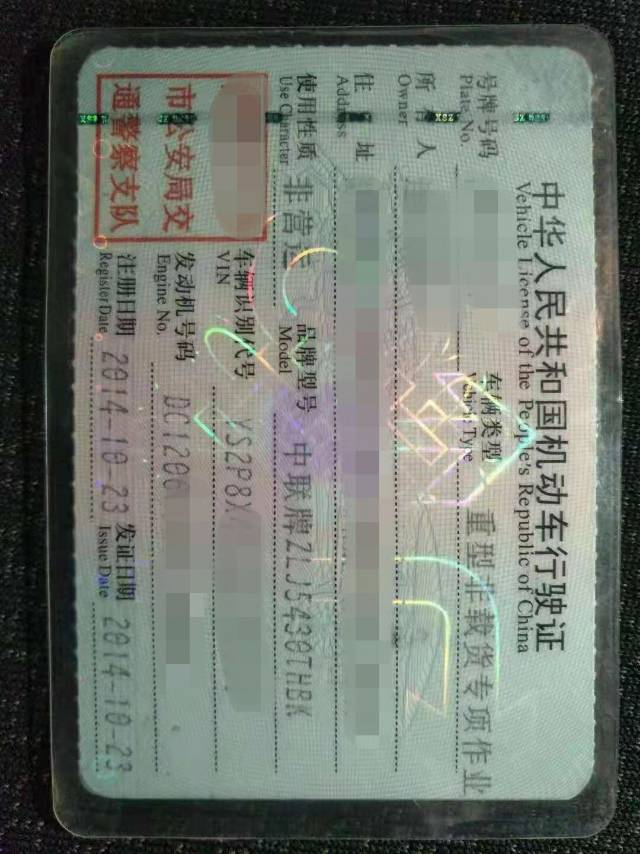 中华人民共和国机动车行驶证
Vehicle License of the People's Republic of China
号牌号码
Plate No.
车辆类型
Vehicle Type
重型非载货专项作业
所有人
Owner
住址
Address
使用性质
Use Character
非营运
品牌型号
Model
中联牌ZLJ5430THBK
车辆识别代号
VIN
YS2P8X
发动机号码
Engine No.
DC1206
注册日期
Register Date
2014-10-23
发证日期
Issue Date
2014-10-23
市公安局交
通警察支队